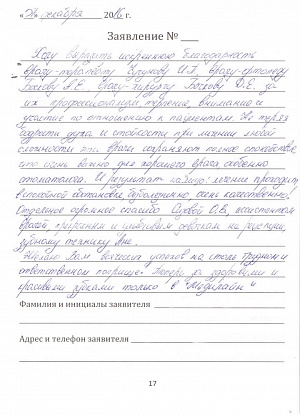 « 24 » декабря 2016 г.
Заявление № ___
Хочу выразить искреннюю благодарность
врачу-терапевту И.А, врачу-ортопеду
А.Е. врачу-хирургу Д.Е. за
их профессионализм, терпение, внимание и
участие по отношению к пациентам. Не теряя
бодрости духа и стойкости при лечении любой
сложности эти врачи сохраняют полное спокойствие,
что очень важно для хорошего врача особенно
стоматолога. И результат налицо: лечение проходит
в спокойной обстановке, безболезненно, очень качественно!
Отдельное огромное спасибо С.В, ассистентам
врачей, девочкам на ресепшн,
зубному технику
Желаю Вам всяческих успехов на столь трудном и
ответственном поприще. Теперь за здоровыми и
красивыми зубками только в "Медилайн"
Фамилия и инициалы заявителя
Адрес и телефон заявителя
17